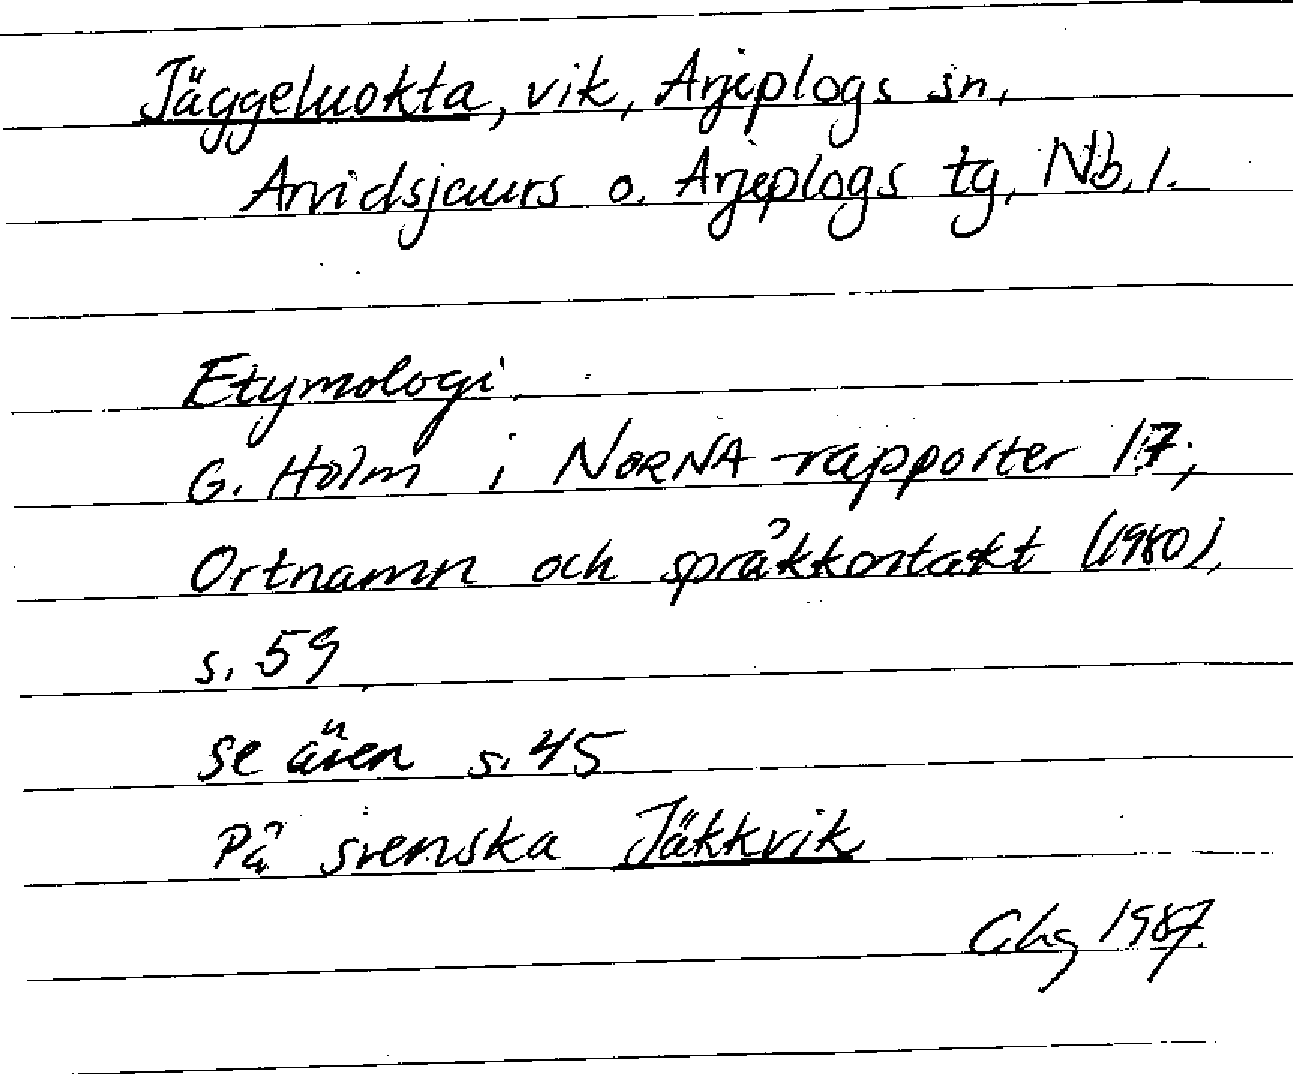 Jäggeluokta, vik, Arjeplogs sn,
Arvidsjaurs o. Arjeplogs tg, Nb. l.
Etymologi
G. Holm i NORNA-rapporter 17;
Ortnamn och språkkontakt (1980),
s. 59
se även s. 45
På svenska Jäkkvik
Chg 1987.